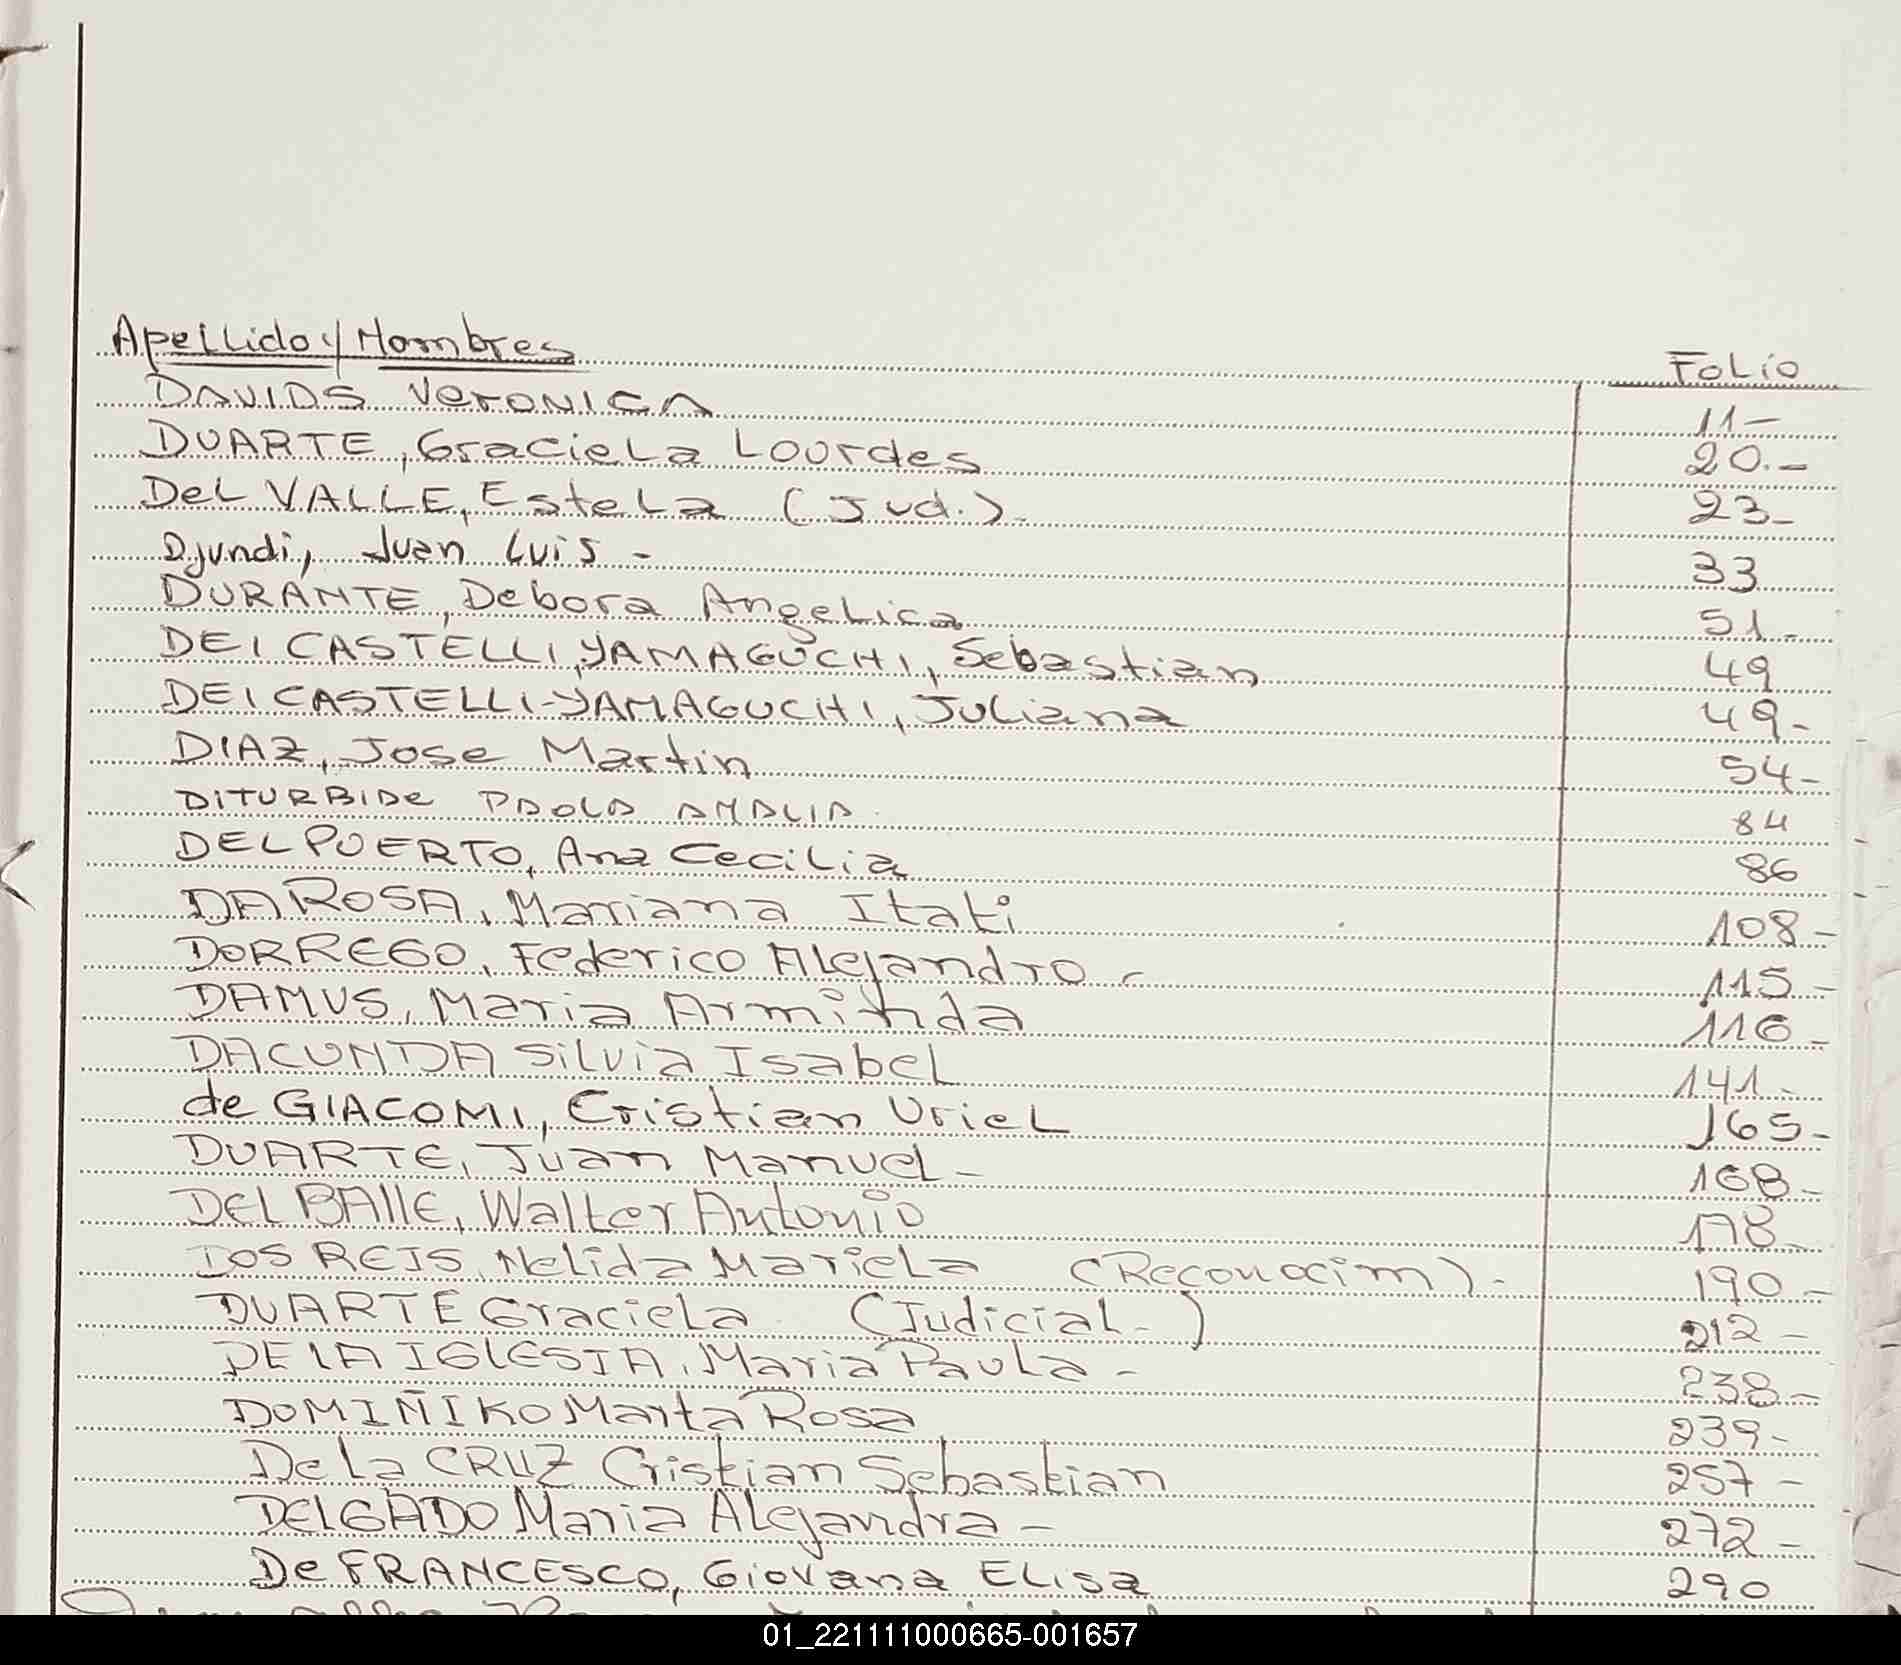 Apellido y Nombres Folio
DAVIDS VeRONICA 11-
DUARTE, Graciela Lourdes 20.-
Del VALLE, Estela (Jud.) 23-
Djundi, Juan Luis - 33
DURANTE, Debora Angelica 51-
DEI CASTELLI, YAMAGUCHI, Sebastian 49
DEI CASTELLI-YAMAGUCHI, Juliana 49-
DIAZ, Jose Martin 54-
DITURBIDe PAOLA AMALIA. 84
DEL PUERTO, Ana Cecilia 86
DA ROSA, Mariana Itati 108-
DORREGO, Federico Alejandro - 115-
DAMUS, Maria Arminda 116-
DACUNDA Silvia Isabel 141-
de GIACOMI, Cristian Uriel 165-
DUARTE, Juan Manuel- 168-
DEL BAllE, Walter Antonio 178-
DOS REIS, Nelida Mariela (Reconocim). 190-
DUARTE Graciela (Judicial-) 212-
DE lA IGlESIA, Maria Paula- 238-
DOMIÑIKO Marta Rosa 239-
De La CRUZ Cristian Sebastian 257-
DElGADO Maria Alejandra- 272-
De FRANCESCO, Giovana Elisa 290
01_221111000665-001657